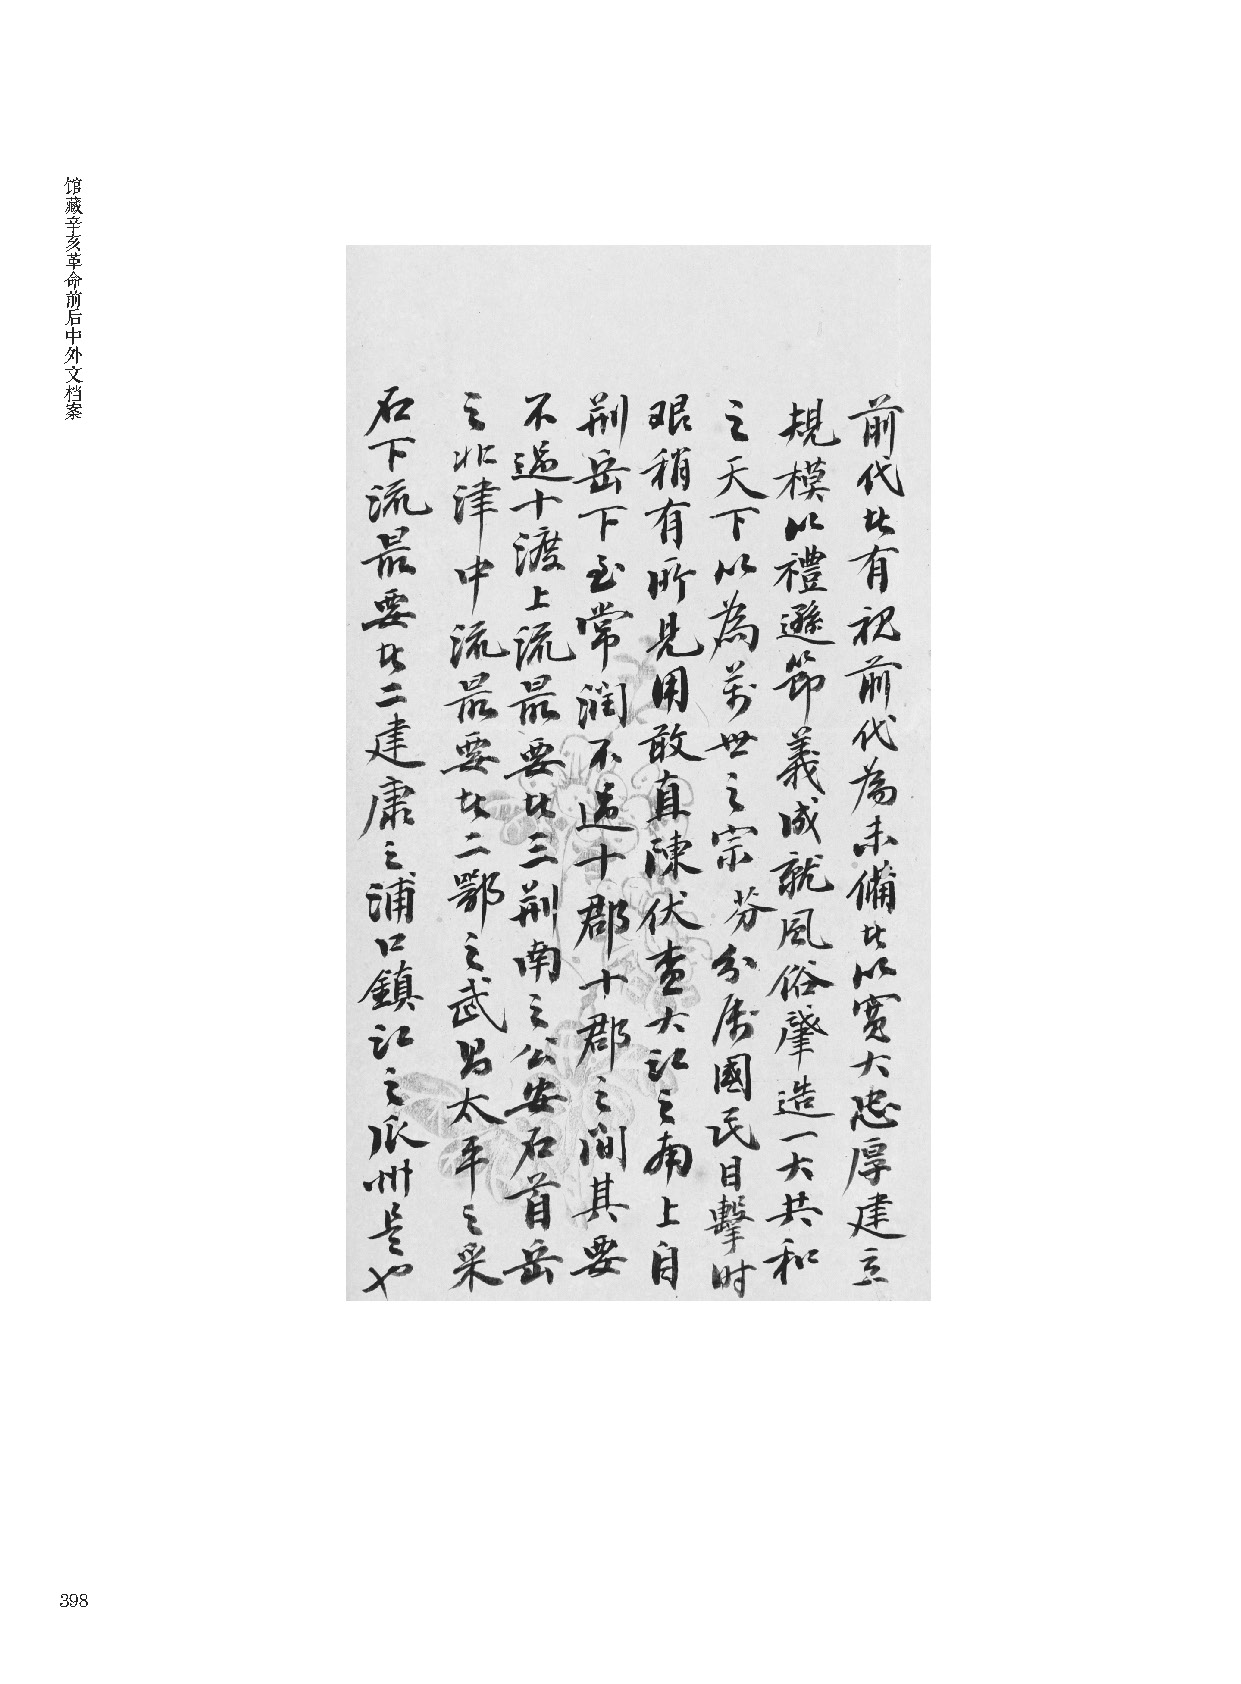 馆藏辛亥革命前后中外文档案
前代比有視前代為未備比以寬大忠厚建立
規模以禮遜節義成就風俗肇造一大共和
之天下以為萬世之宗芬分屬國民目擊时
艱稍有所見用敢直陳伏查大江之南上自
荆岳下至常潤不過十郡十郡之间其要
不過十渡上流最要比三荆南之公安石首岳
之北津中流最要比二鄂之武昌太平之采
石下流最要比二建康之浦口鎮江之瓜州是也
398